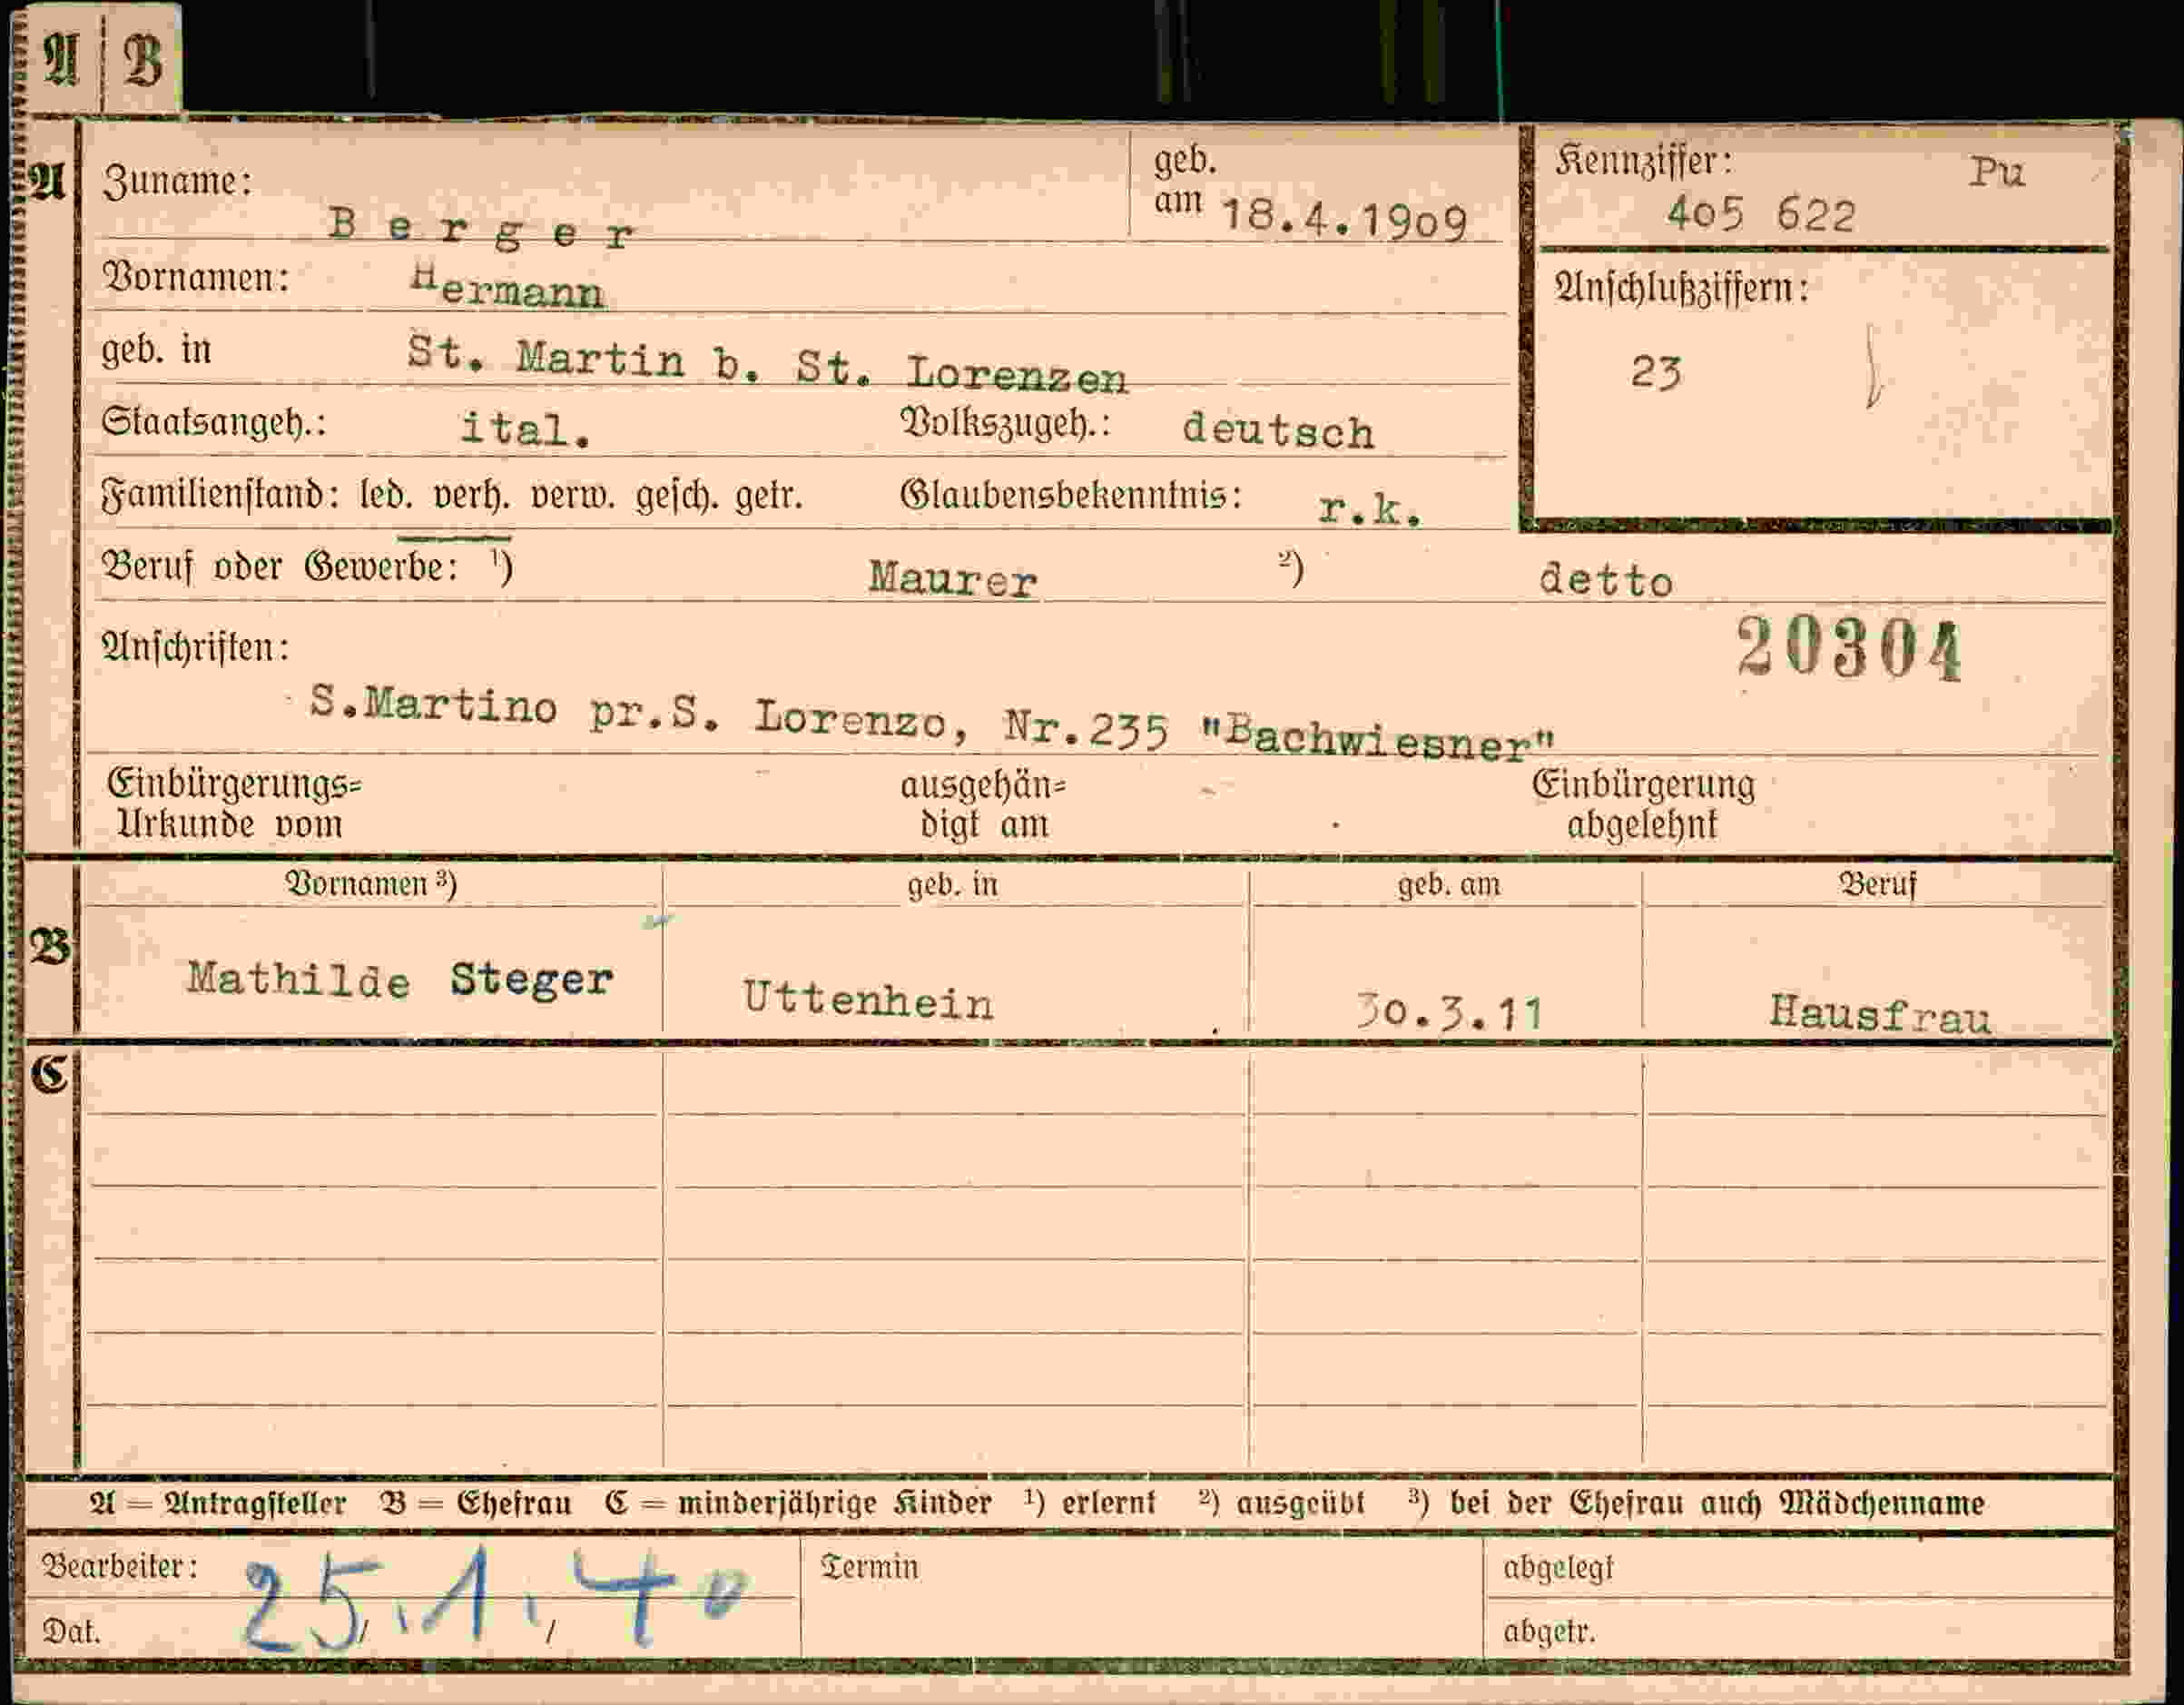 A B
A Zuname: Berger geb. am 18.4.1909
Kennziffer: Pu
405 622
Vornamen: Hermann
Anschlußziffern:
23
geb. in St. Martin b. St. Lorenzen
Staatsangeh.: ital. Volkszugeh.: deutsch
Familienstand: led. verh. verw. gesch. getr. Glaubensbekenntnis: r.k.
Beruf oder Gewerbe: ¹) Maurer ²) detto
Anschriften: 20304
S.Martino pr.S. Lorenzo, Nr.235 "Bachwiesner"
Einbürgerungs= ausgehän= Einbürgerung
Urkunde vom digt am abgelehnt
Vornamen ³) geb. in geb. am Beruf
B Mathilde Steger Uttenhein 30.3.11 Hausfrau
C
A = Antragsteller B = Ehefrau C = minderjährige Kinder ¹) erlernt ²) ausgeübt ³) bei der Ehefrau auch Mädchenname
Bearbeiter: Termin abgelegt
Dat. 25.1.40 abgetr.